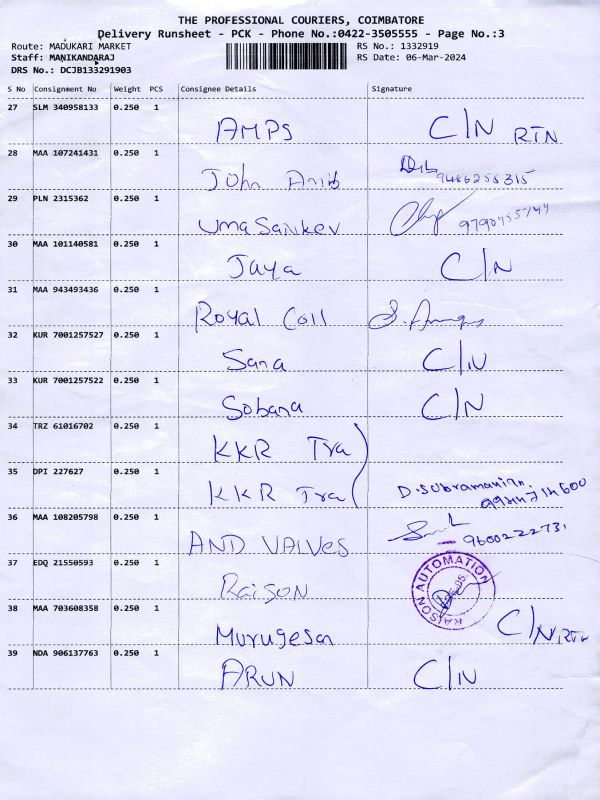 THE PROFESSIONAL COURIERS, COIMBATORE
Delivery Runsheet - PCK - Phone No.:0422-3505555 - Page No.:3
Route: MADUKARI MARKET RS No.: 1332919
Staff: MANIKANDARAJ RS Date: 06-Mar-2024
DRS No.: DCJB133291903
S No Consignment No Weight PCS Consignee Details Signature
27 SLM 340958133 0.250 1 AMPS C/N RTN
28 MAA 107241431 0.250 1 John 9486255315
29 PLN 2315362 0.250 1 Uma Sanker
30 MAA 101140581 0.250 1 Jaya C/N
31 MAA 943493436 0.250 1 Royal Coil
32 KUR 7001257527 0.250 1 Sana C/N
33 KUR 7001257522 0.250 1 Sobana C/N
34 TRZ 61016702 0.250 1 KKR Tra
35 DPI 227627 0.250 1 KKR Tra D. Subramanian.
36 MAA 108205798 0.250 1 AND VALVES 9600222731
37 EDQ 21550593 0.250 1 Raison RAISON AUTOMATION
38 MAA 703608358 0.250 1 Murugesan C/N RTN
39 NDA 906137763 0.250 1 ARUN C/N